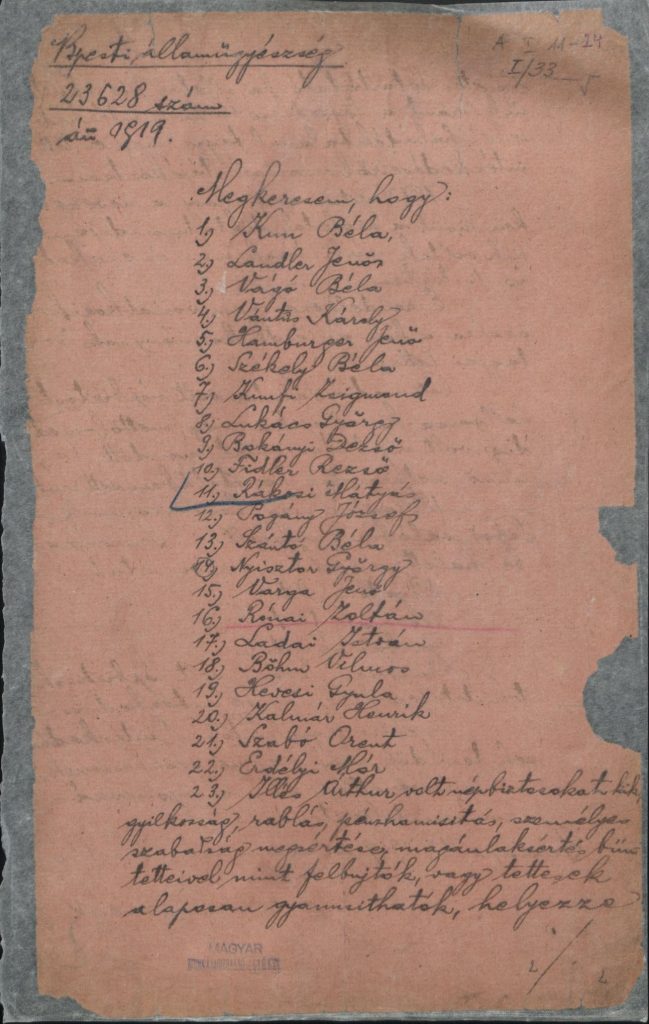 Bpesti államügyészség
A I 11-24
I/33
23628 szám
áü 1919.
Megkeresem, hogy:
1.) Kun Béla,
2.) Landler Jenő
3.) Vágó Béla
4.) Vántus Károly
5.) Hamburger Jenő
6.) Székely Béla
7.) Kunfi Zsigmond
8.) Lukács György
9.) Bokányi Dezső
10.) Fidler Rezső
11.) Rákosi Mátyás
12.) Pogány József
13.) Szántó Béla
14.) Nyisztor György
15.) Varga Jenő
16.) Rónai Zoltán
17.) Ladai István
18.) Bőhm Vilmos
19.) Hevesi Gyula
20.) Kalmár Henrik
21.) Szabó Orent
22.) Erdélyi Mór
23.) Illés Arthur volt népbiztosokat, kik
gyilkosság, rablás, pénzhamisitás, személyes
szabadság megsértése, magánlaksértés bün
tetteivel, mint felbujtók, vagy tettesek
alaposan gyanusithatók, helyezze
MAGYAR